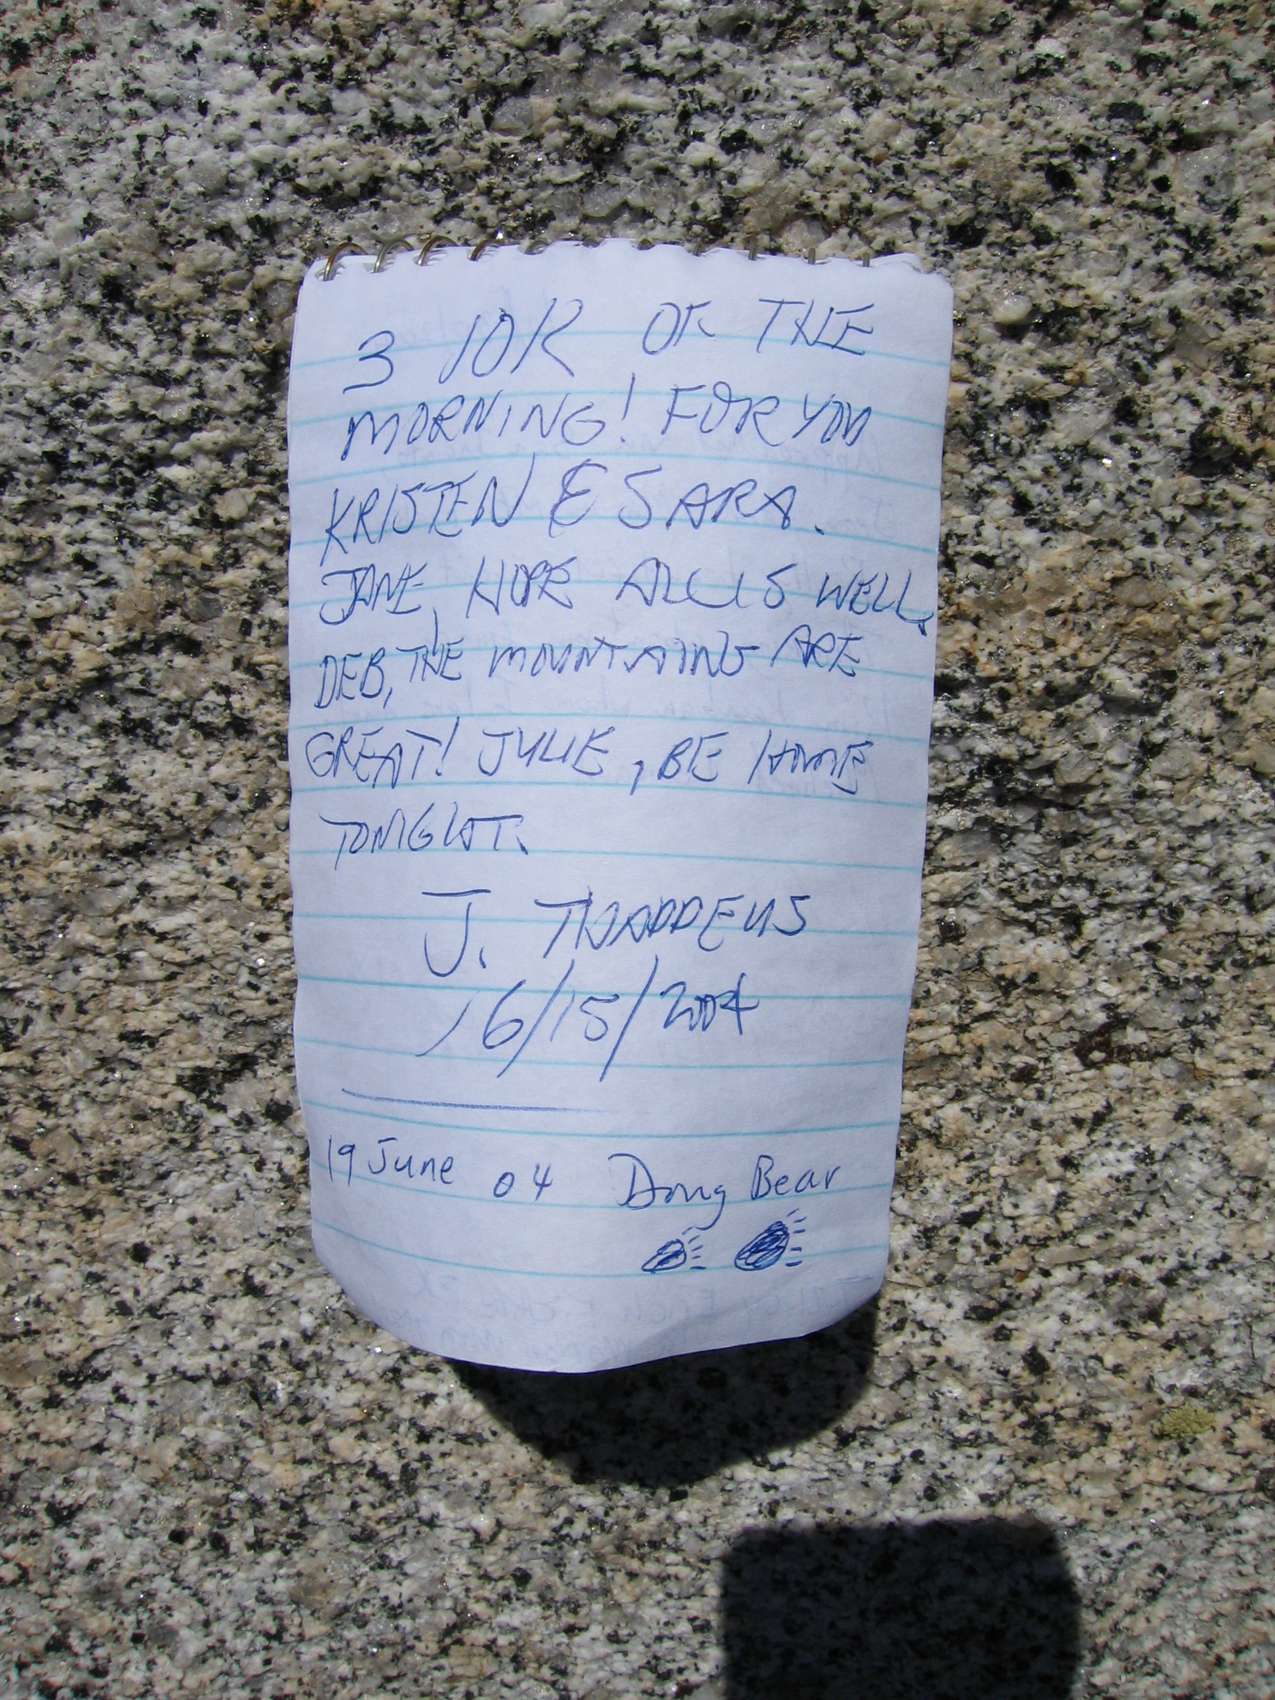 3 10K OF THE
MORNING! FOR YOU
KRISTEN & SARA.
JANE, HOPE ALL IS WELL.
DEB, THE MOUNTAINS ARE
GREAT! JULIE, BE HOME
TONIGHT.
J. THADDEUS
6/15/2004
19 June 04 Doug Bear